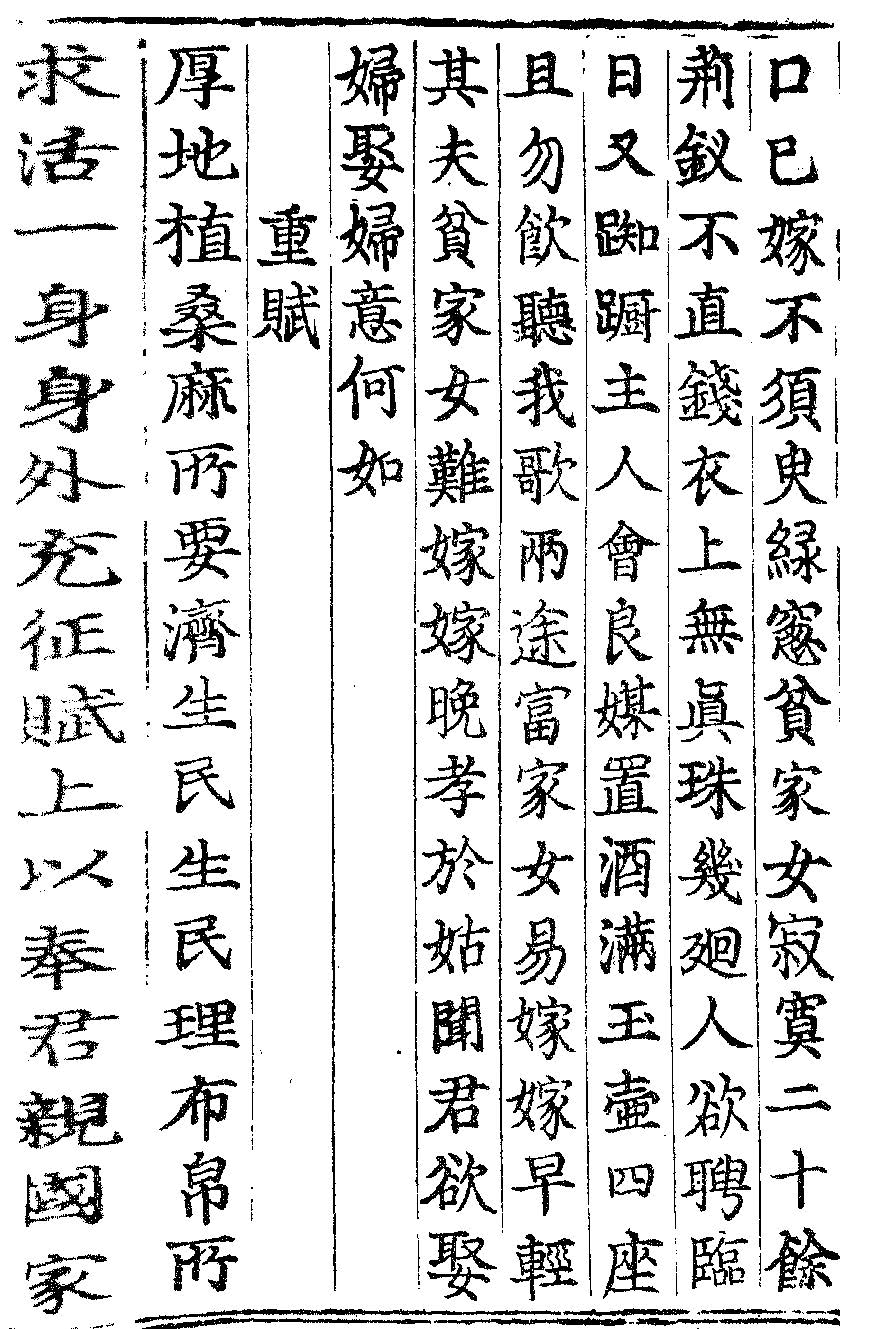 口已嫁不須臾緑窻貧家女寂寞二十餘
荊釵不直錢衣上無眞珠幾廻人欲聘臨
日又踟蹰主人會良媒置酒滿玉壷四座
且勿飮聽我歌兩途富家女易嫁嫁早輕
其夫貧家女難嫁嫁晚孝於姑聞君欲娶
婦娶婦意何如
重賦
厚地植桑麻所要濟生民生民理布帛所
求活一身身外充征賦上以奉君親國家